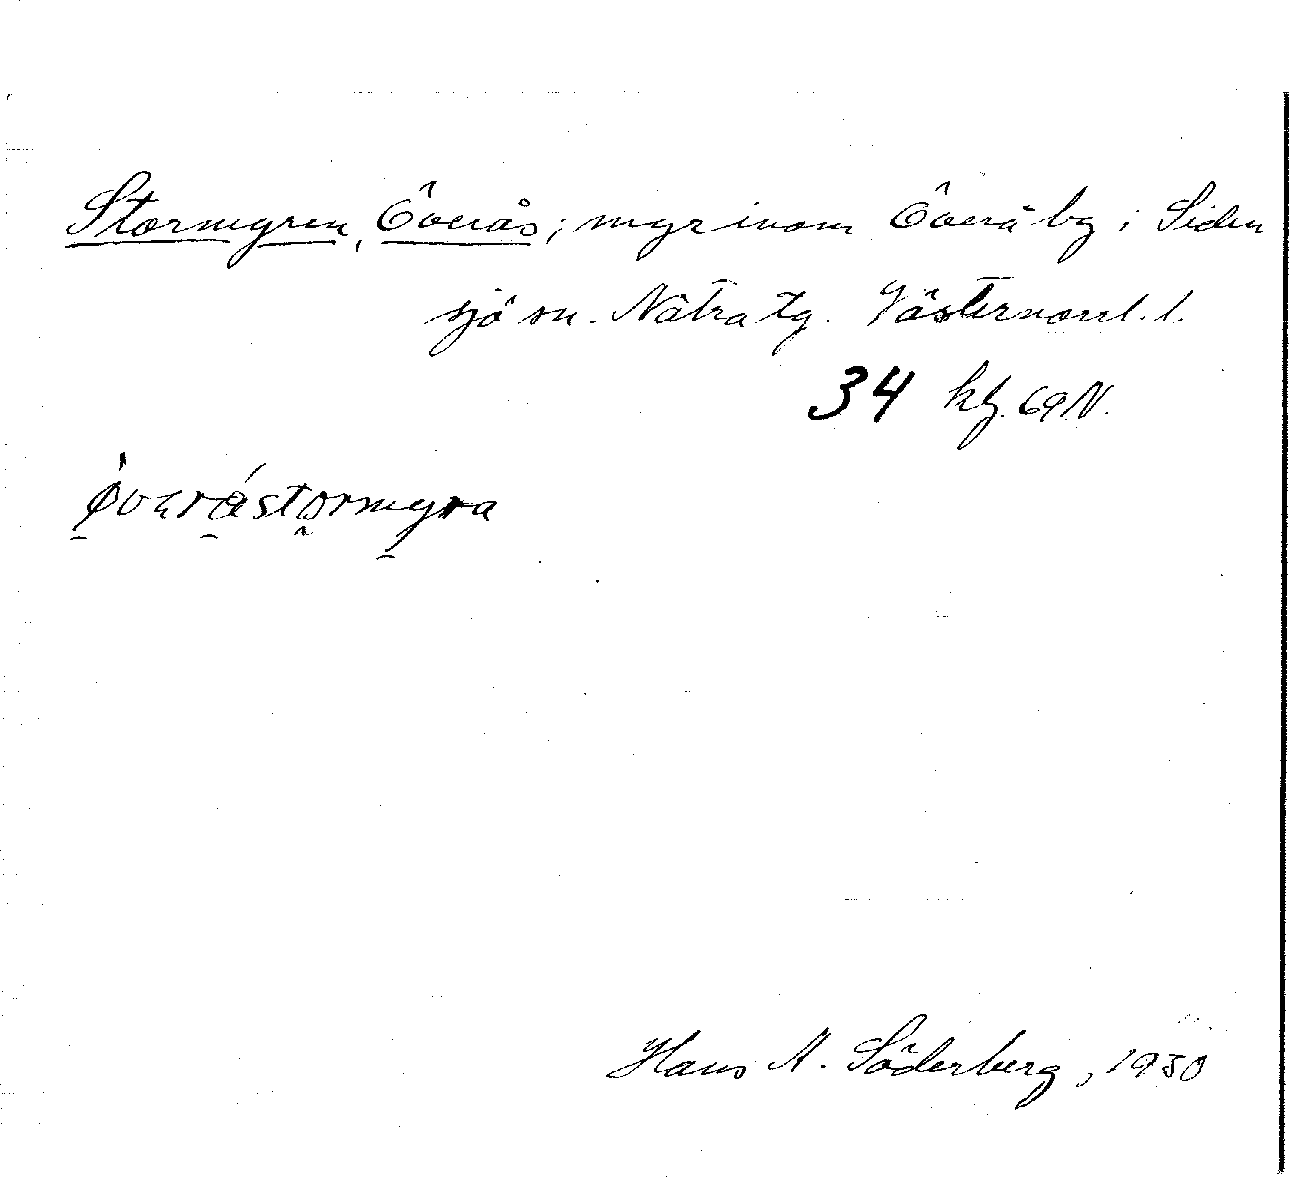 Stormyren, Överås; myr inom Överå by i Siden
sjö sn. Nätra tg. Västernorrl. l.
34 kbl. 69 N.
øvəråstormyra
Hans A. Söderberg, 1930